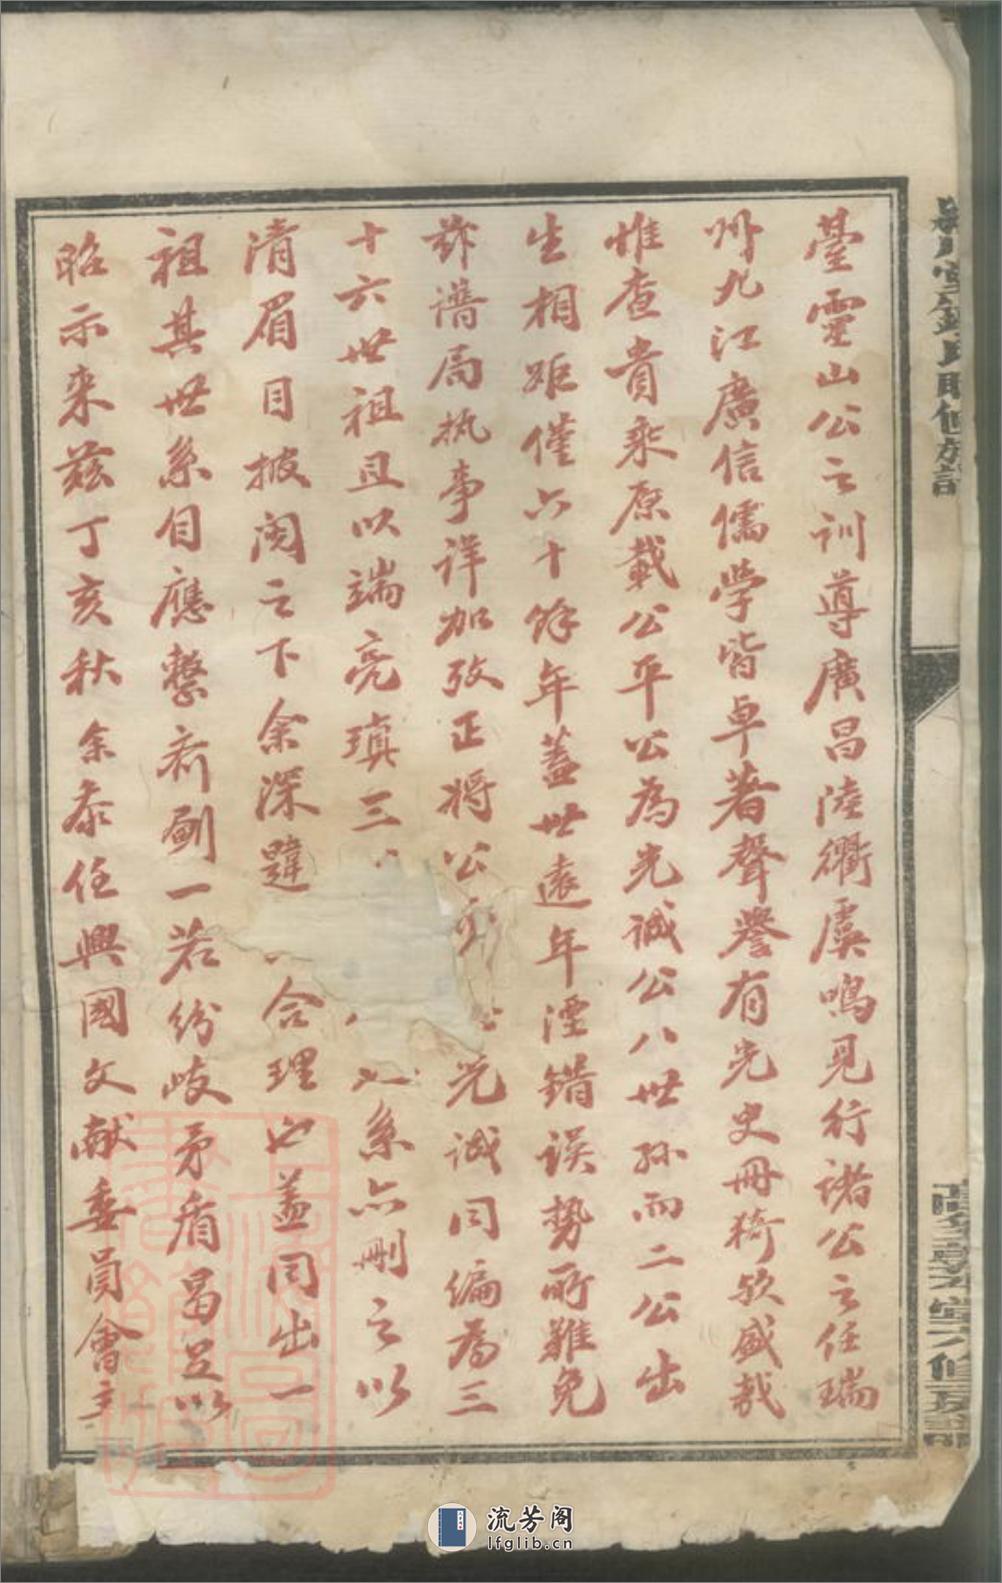 臺靈山公之訓導廣昌陸衢虞鳴見行諸公之任瑞
州九江廣信儒學皆卓著聲譽有光史冊猗欤盛哉
惟查貴乘原載公平公為光诚公八世孙而二公出
生相距僅六十餘年蓋世遠年湮錯误势所難免
兹谱局执事详加攷正将公 光诚同编為三
十六世祖且以端亮瑱三 系亦刪之以
清眉目披阅之下余深韙 合理也盖同出一
祖其世系自應整齐劃一若纷歧矛盾曷足以
昭示来兹丁亥秋余忝任興國文献委員會主
流芳阁
lfglib.cn